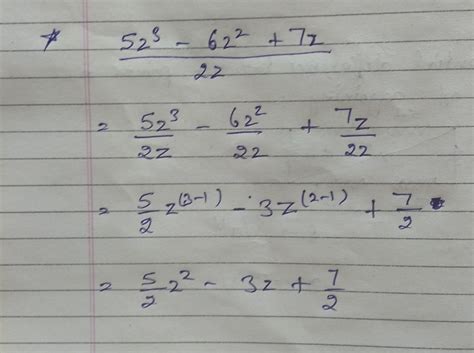 * (5z³ - 6z² + 7z) / 2z
= 5z³/2z - 6z²/2z + 7z/2z
= 5/2 z⁽³⁻¹⁾ - 3z⁽²⁻¹⁾ + 7/2
= 5/2 z² - 3z + 7/2